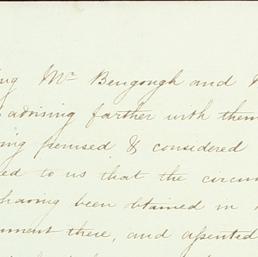 ing Mr Bengough and
advising farther with them
ing perused & considered
ed to us that the circum
having been obtained in
ument there, and assented